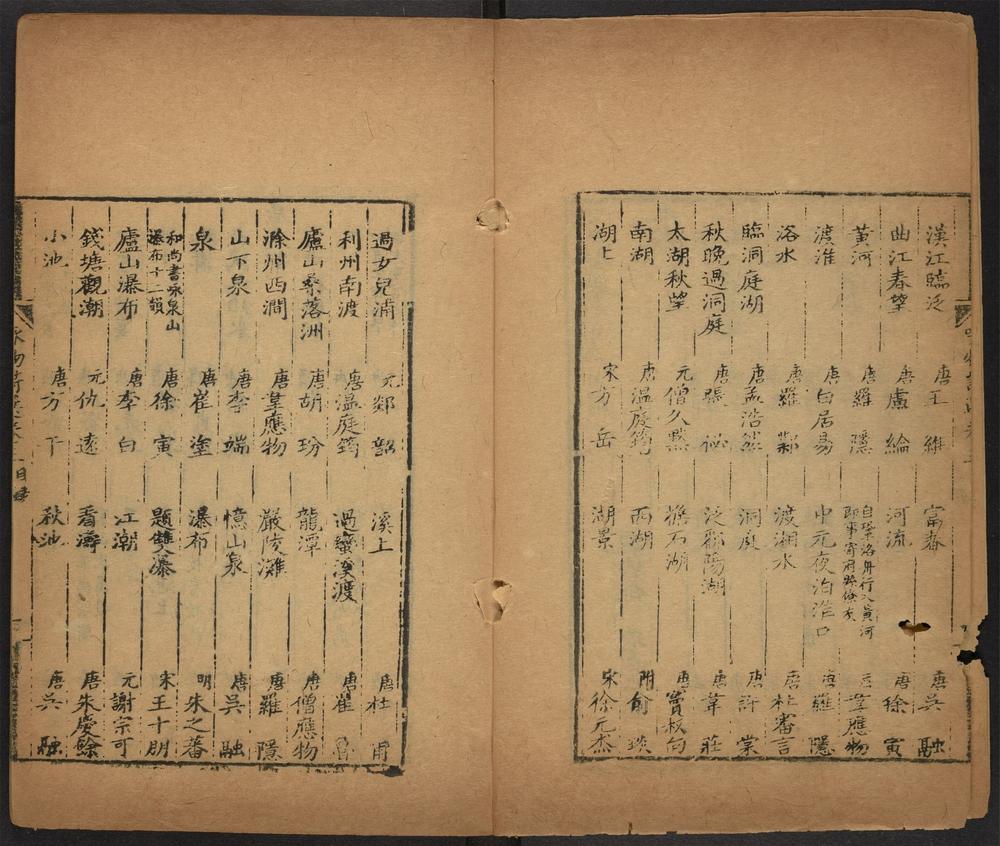 漢江臨泛 唐王維 富春 唐吳融
曲江春望 唐盧綸 河流 唐徐寅
黃河 唐羅隱 自鞏洛舟行入黃河即事寄府縣僚友 唐韋應物
渡淮 唐白居易 中元夜泊淮口 唐羅隱
洛水 唐羅鄴 渡湘水 唐杜審言
臨洞庭湖 唐孟浩然 洞庭 唐許棠
秋晚過洞庭 唐張泌 泛鄱陽湖 唐韋莊
太湖秋望 元僧久 撫石湖 唐竇叔向
南湖 唐溫庭筠 西湖 明俞琰
湖上 宋方岳 湖景 宋徐元杰
過女兒浦 元鄭韶 溪上 唐杜甫
利州南渡 唐溫庭筠 過蠻溪渡 唐崔魯
廬山桑落洲 唐胡玢 龍潭 唐僧應物
滁州西澗 唐韋應物 嚴陵灘 唐羅隱
山下泉 唐李端 憶山泉 唐吳融
泉 唐崔塗 瀑布 明朱之蕃
和尚書咏泉山瀑布十二韻 唐徐寅 題雙瀑 宋王十朋
廬山瀑布 唐李白 江潮 元謝宗可
錢塘觀潮 元仇遠 看濤 唐朱慶餘
小池 唐方干 秋池 唐吳融
目錄